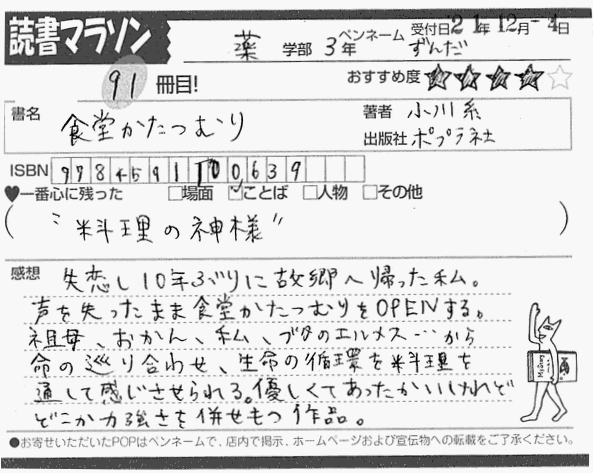 読書マラソン
薬 学部 3年 ペンネーム ずんだ 受付日 21年 12月 -4日
91 冊目!
おすすめ度 ★★★★☆
書名 食堂かたつむり
著者 小川糸
出版社 ポプラ社
ISBN 9784591100639
♥一番心に残った □場面 ☑ことば □人物 □その他
( "料理の神様" )
感想 失恋し10年ぶりに故郷へ帰った私。
声を失ったまま食堂かたつむりをOPENする。
祖母、おかん、私、ブタのエルメス…から
命の巡り合わせ、生命の循環を料理を
通して感じさせられる。優しくてあったかいけれど
どこか力強さを併せもつ作品。
●お寄せいただいたPOPはペンネームで、店内で掲示、ホームページおよび宣伝物への転載をご了承ください。